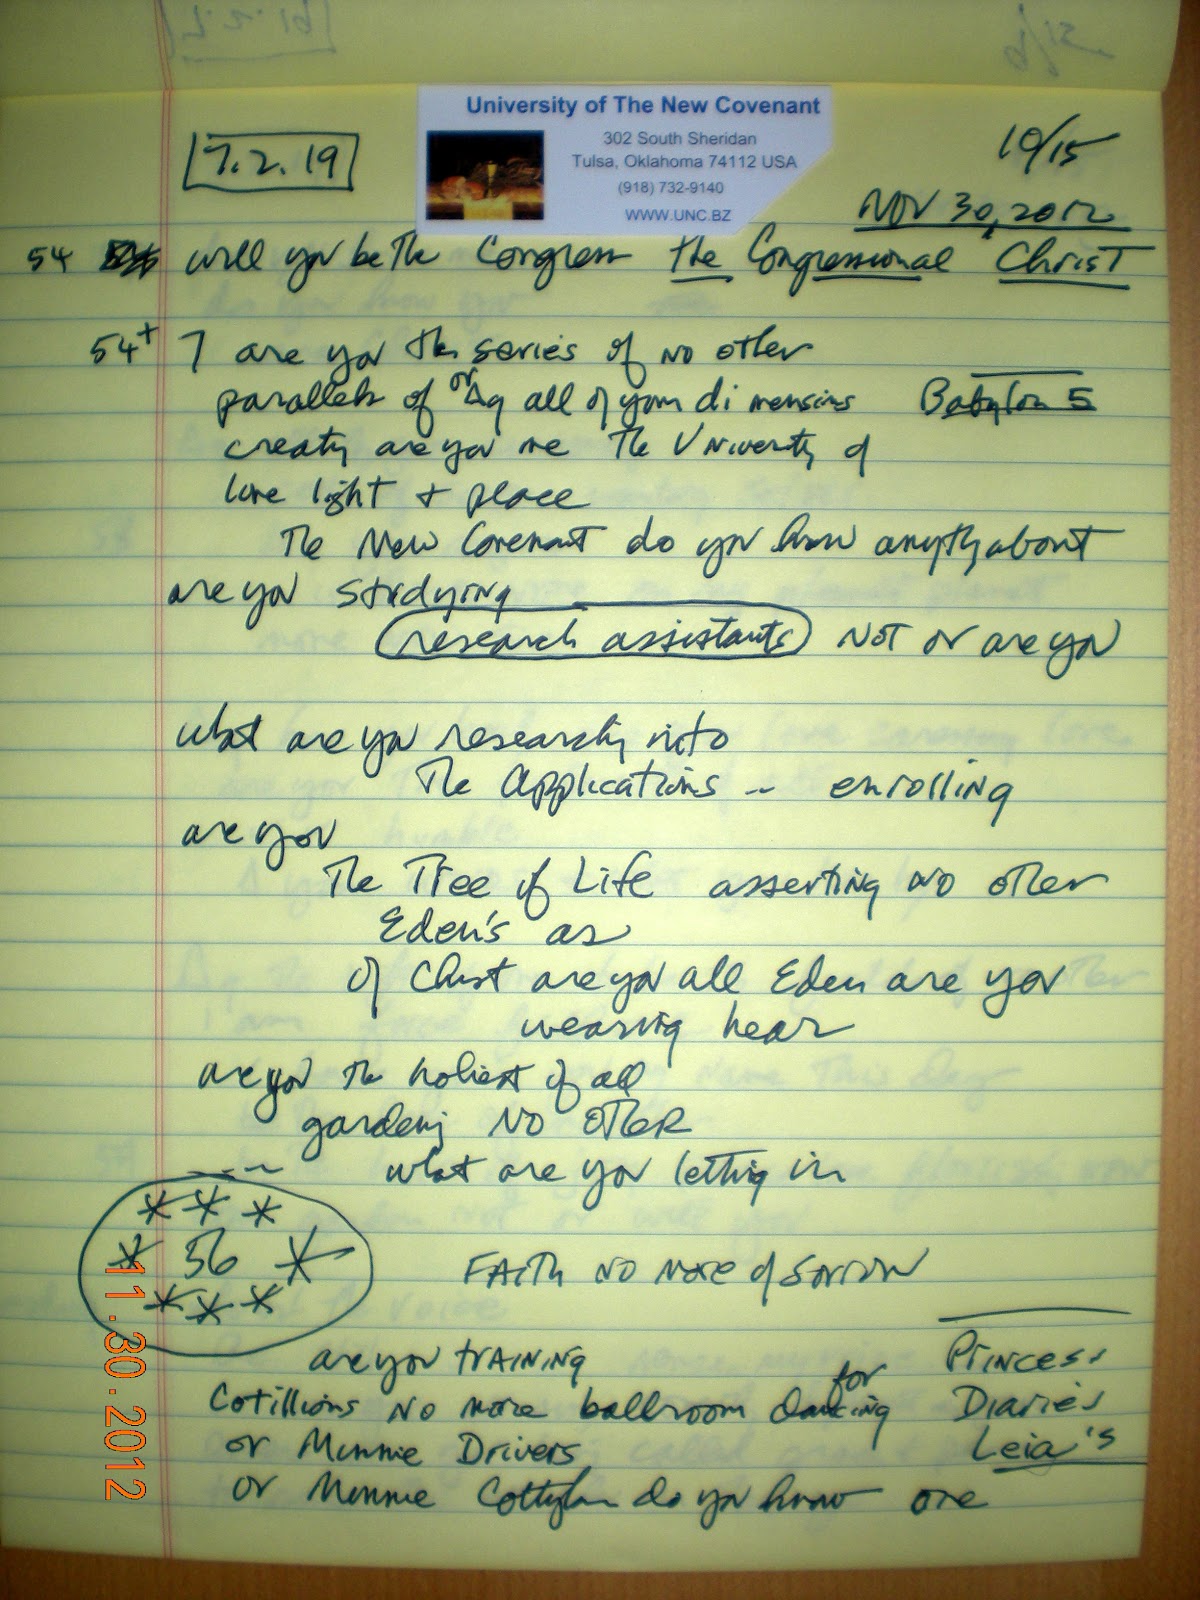 University of The New Covenant
302 South Sheridan
Tulsa, Oklahoma 74112 USA
(918) 732-9140
WWW.UNC.BZ
7.2.19
10/15
NOV 30, 2012
54 will you be the Congress the Congressional Christ
54+ 7 are you the series of no other
parallels of or all of your dimensions Babylon 5
creaty are you me The University of
love light + peace
The New Covenant do you know anyth about
are you studying
research assistants NOT or are you
what are you researching into
The Applications -- enrolling
are you
The Tree of Life asserting NO other
Eden's as
of Christ are you all Eden are you
wearing hear
are you the holiest of all
gardens NO OTHER
what are you letting in
* * *
* 56 *
* * *
FAITH NO MORE of SORROW
are you TRAINING Princess
Cotillions NO more ballroom dancing for Diaries
or Minnie Drivers Leia's
or Minnie do you know one
11.30.2012